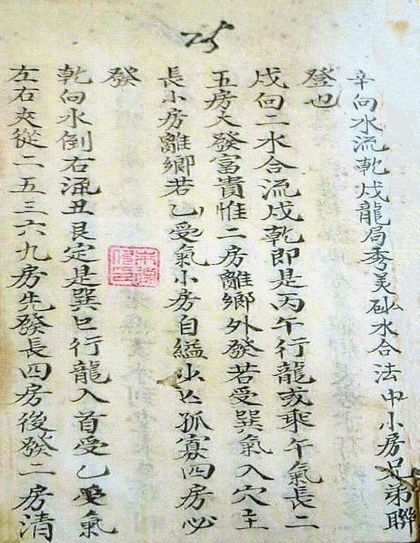 25
辛向水流乾戌龍局秀美砂水合法中小房兄弟聯
登也
戌向二水合流戌乾即是丙午行龍或乘午氣長二
五房大發富貴惟二房離鄉外發若受巽氣入穴主
長小房離鄉若乙受氣小房自縊少亡孤寡四房必
發
乾向水倒右流丑艮定是巽巳行龍入首受乙氣
左右夾從二五三六九房先發長四房後發二房清